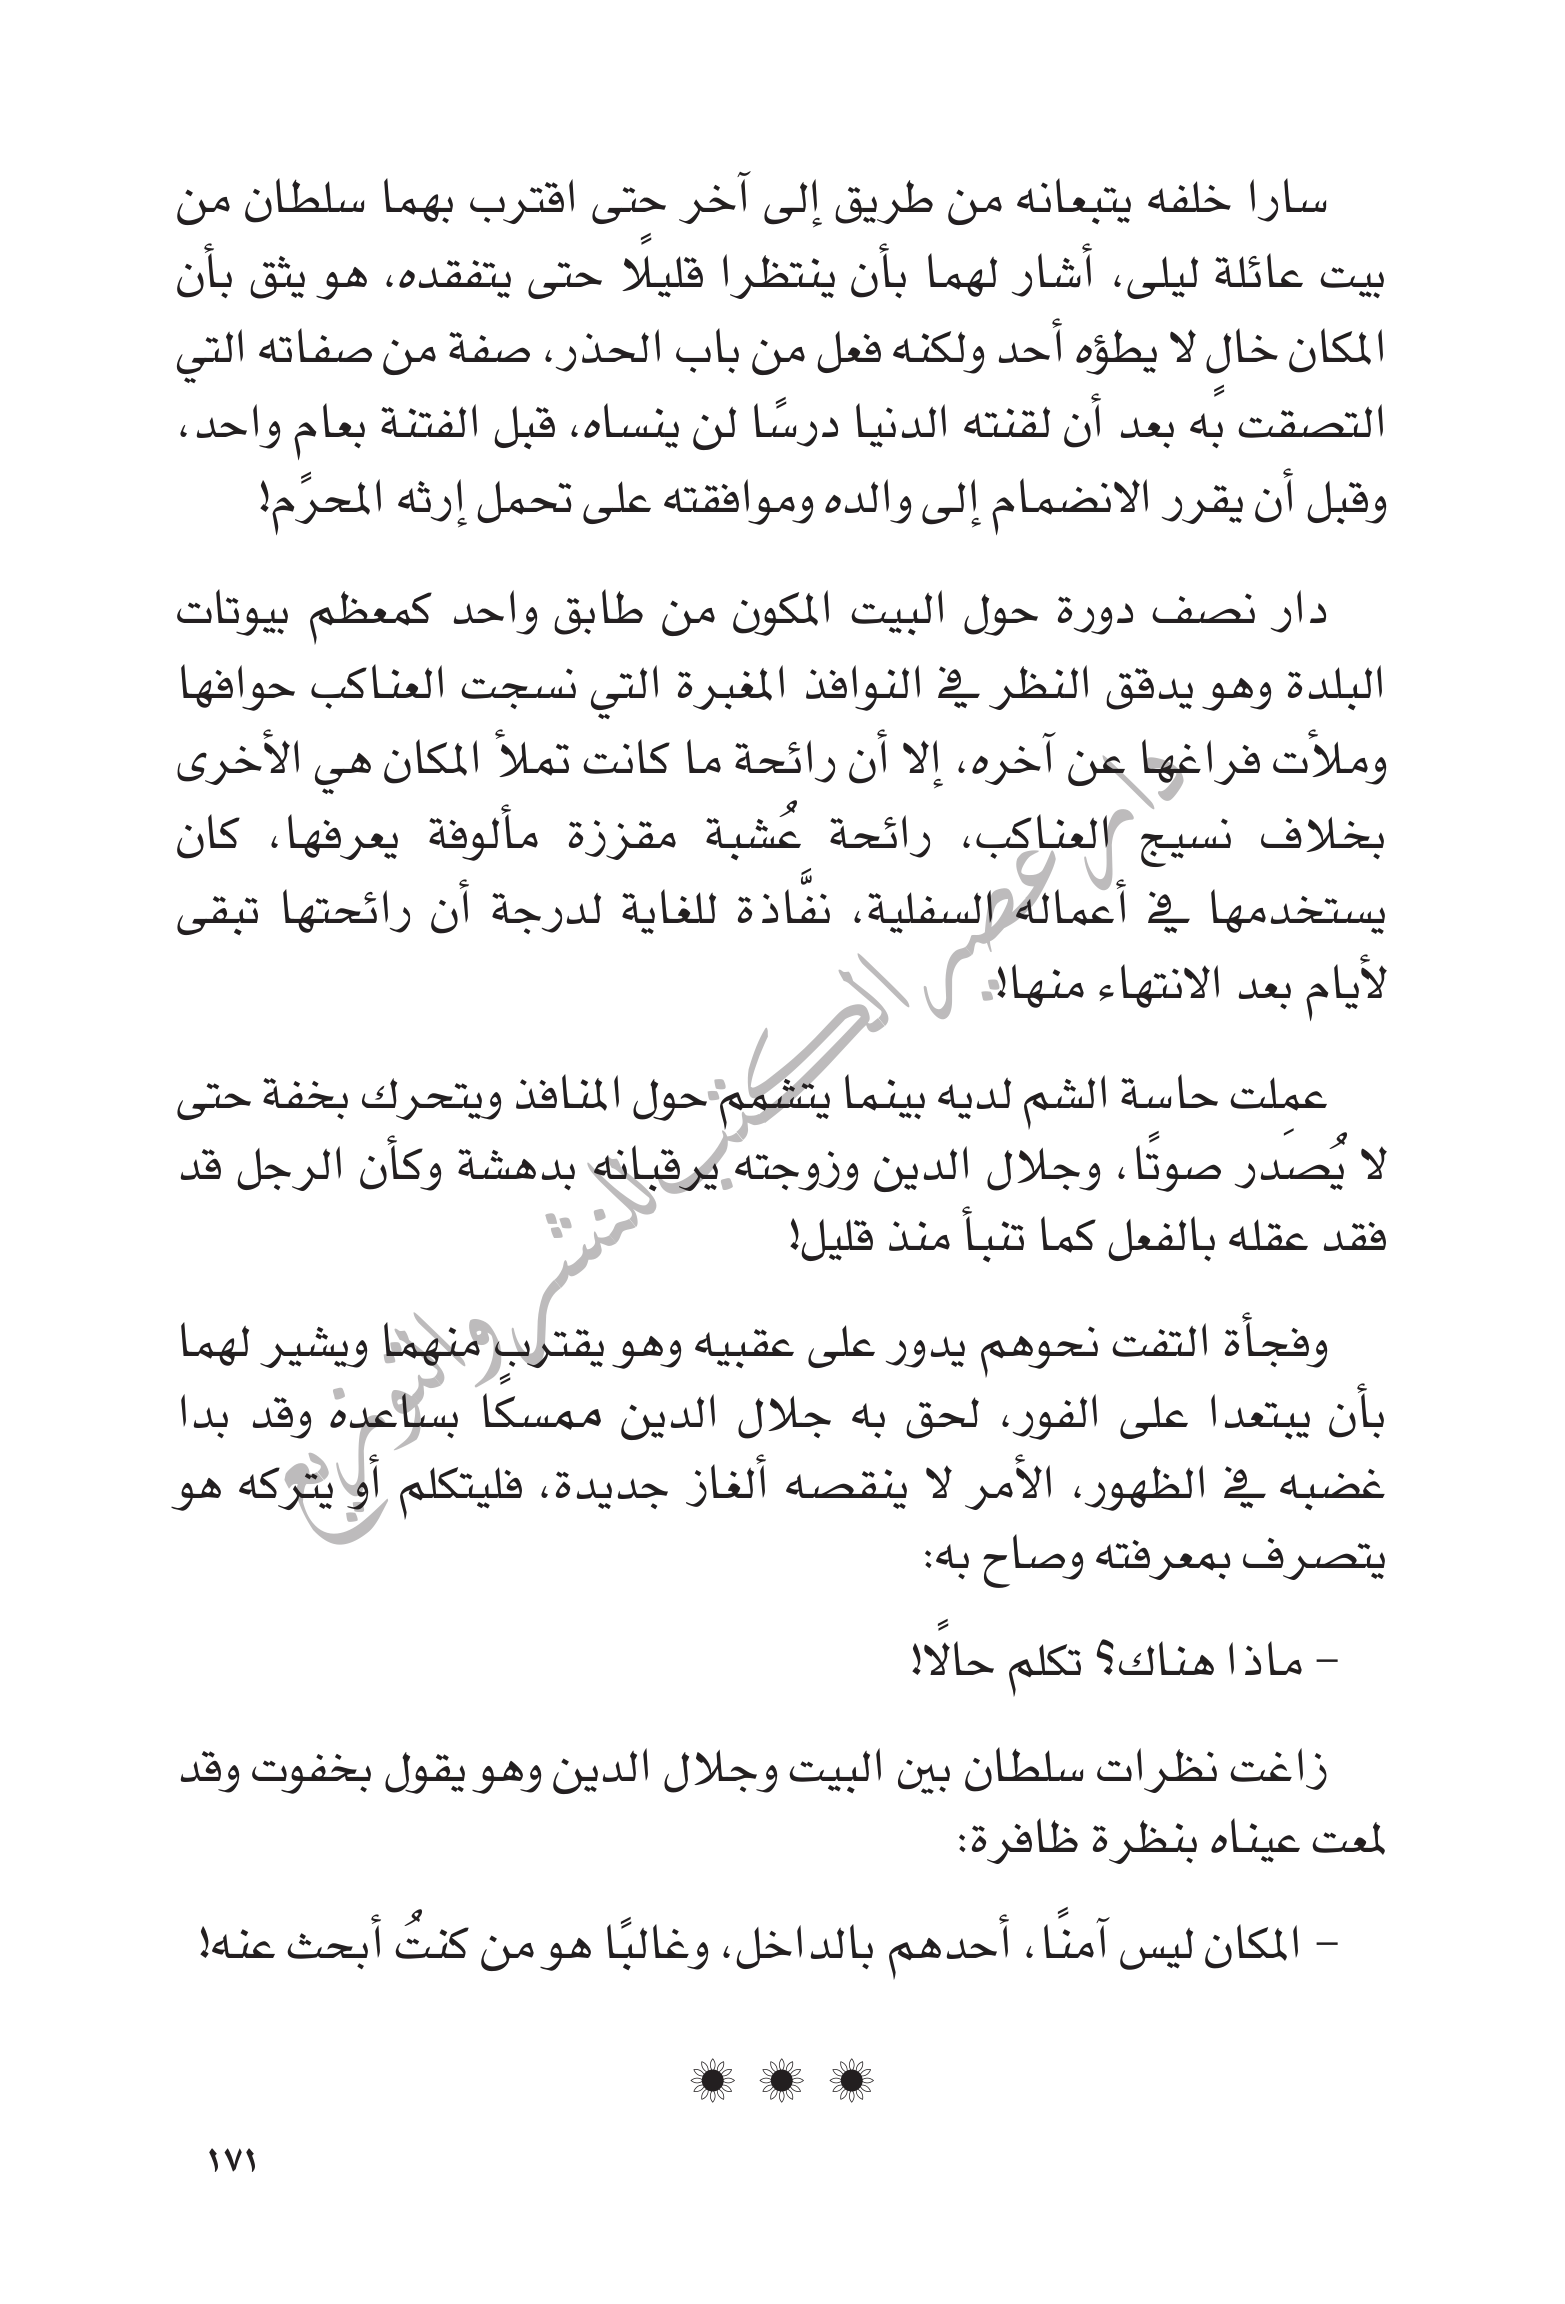 سارا خلفه يتبعانه من طريق إلى آخر حتى اقترب بهما سلطان من
بيت عائلة ليلى، أشار لهما بأن ينتظرا قليلًا حتى يتفقده، هو يثق بأن
المكان خالٍ لا يطؤه أحد ولكنه فعل من باب الحذر، صفة من صفاته التي
التصقت به بعد أن لقنته الدنيا درسًا لن ينساه، قبل الفتنة بعام واحد،
وقبل أن يقرر الانضمام إلى والده وموافقته على تحمل إرثه المحرَّم!
دار نصف دورة حول البيت المكون من طابق واحد كمعظم بيوتات
البلدة وهو يدقق النظر في النوافذ المغبرة التي نسجت العناكب حوافها
وملأت فراغها عن آخره، إلا أن رائحة ما كانت تملأ المكان هي الأخرى
بخلاف نسيج العناكب، رائحة عُشبة مقززة مألوفة يعرفها، كان
يستخدمها في أعماله السفلية، نفَّاذة للغاية لدرجة أن رائحتها تبقى
لأيام بعد الانتهاء منها!
عمِلت حاسة الشم لديه بينما يتشمم حول المنافذ ويتحرك بخفة حتى
لا يُصدر صوتًا، وجلال الدين وزوجته يرقبانه بدهشة وكأن الرجل قد
فقد عقله بالفعل كما تنبأ منذ قليل!
وفجأة التفت نحوهم يدور على عقبيه وهو يقترب منهما ويشير لهما
بأن يبتعدا على الفور، لحق به جلال الدين ممسكًا بساعده وقد بدا
غضبه في الظهور، الأمر لا ينقصه ألغاز جديدة، فليتكلم أو يتركه هو
يتصرف بمعرفته وصاح به:
– ماذا هناك؟ تكلم حالًا!
زاغت نظرات سلطان بين البيت وجلال الدين وهو يقول بخفوت وقد
لمعت عيناه بنظرة ظافرة:
– المكان ليس آمنًا، أحدهم بالداخل، وغالبًا هو من كنتُ أبحث عنه!
١٧١
دار عصير الكتب للنشر والتوزيع